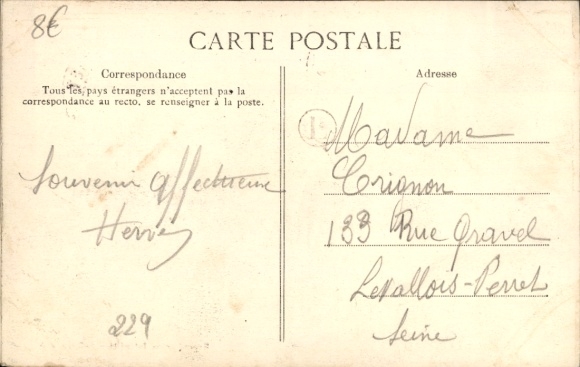 8€
CARTE POSTALE
Correspondance
Tous les pays étrangers n'acceptent pas la
correspondance au recto, se renseigner à la poste.
Souvenir affectueux
Hervé
229
Adresse
Madame
Crignon
133 Rue Gravel
Levallois-Perret
Seine